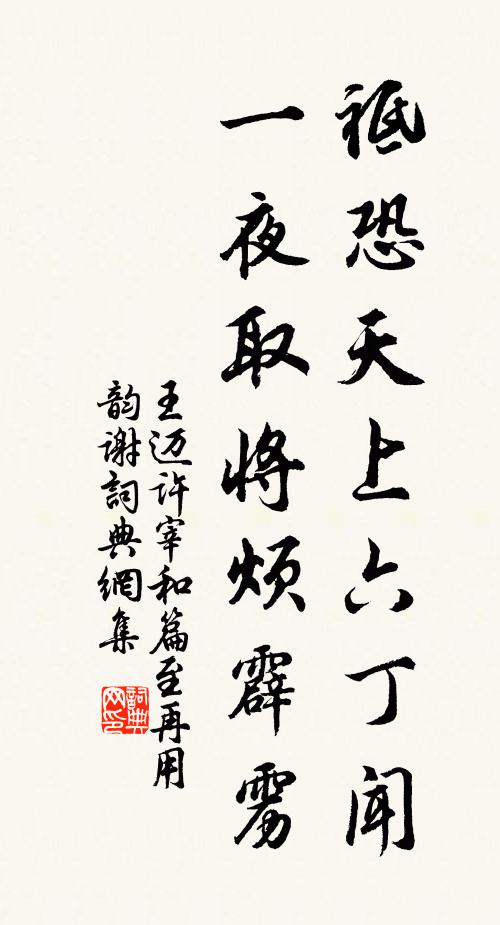 祗恐天上六丁闻
一夜取将烦霹雳
王迈许宰和篇至再用
韵谢詞典網集
詞典网印